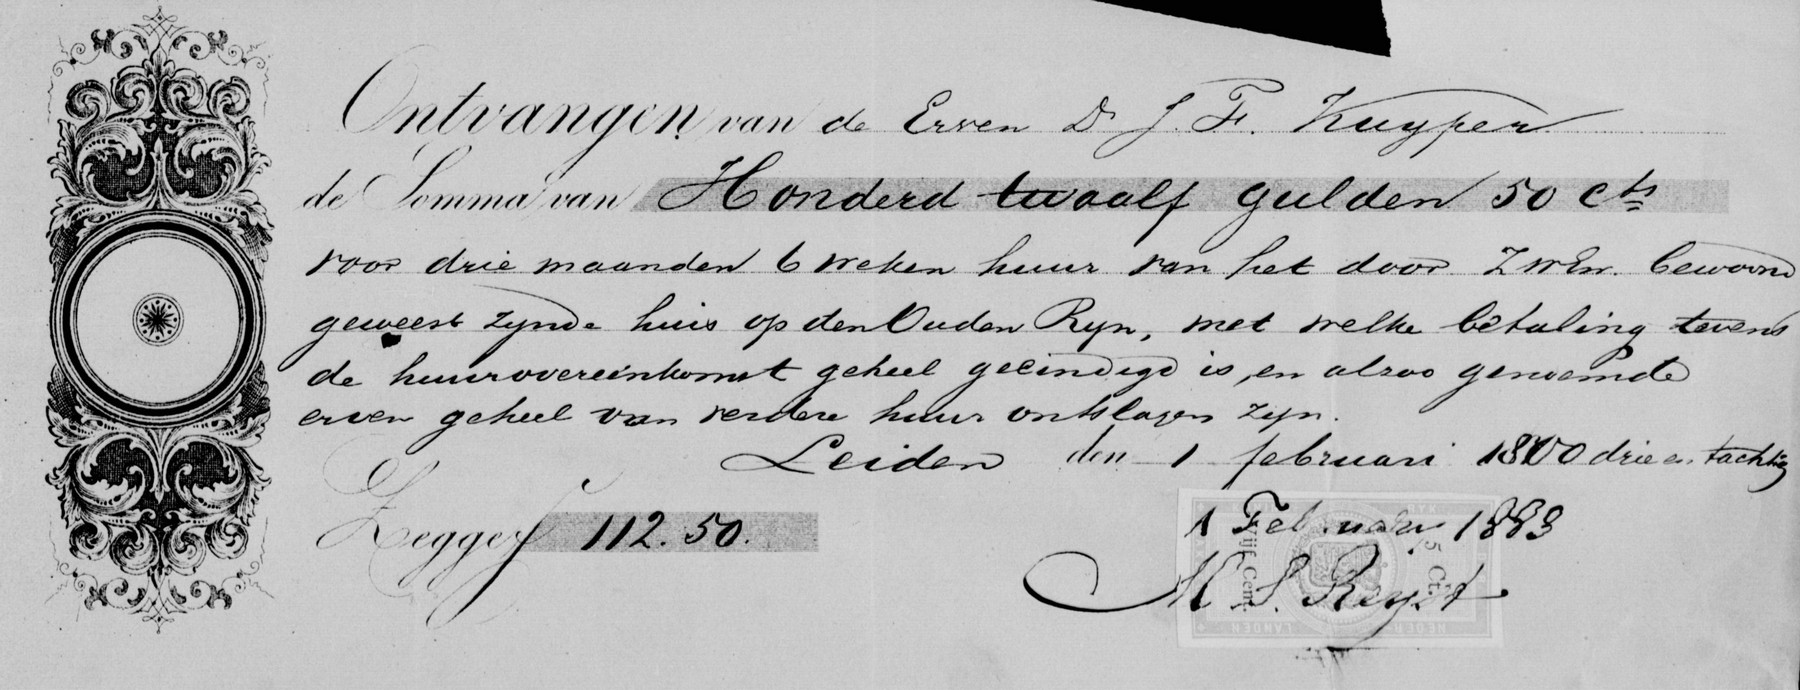 Ontvangen van de Erven Dr J. F. Kuyper
de Somma van Honderd twaalf gulden 50 cts
voor drie maanden 6 weken huur van het door ZWEw. bewoond
geweest zynde huis op den Ouden Ryn, met welke betaling tevens
de huurovereenkomst geheel geeindigd is, en alzoo genoemde
erven geheel van verdere huur ontslagen zyn.
Leiden den 1 februari 1800 drie en tachtig
Zegge f 112.50.
1 Februari 1883
Vijf Cent 5 Ct.
M. S. Reyst
NEDER LANDEN